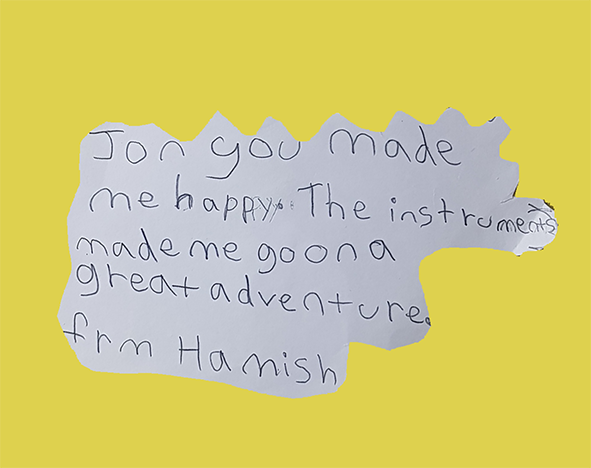 Jon you made
me happy. The instruments
made me go on a
great adventure.
frm Hamish